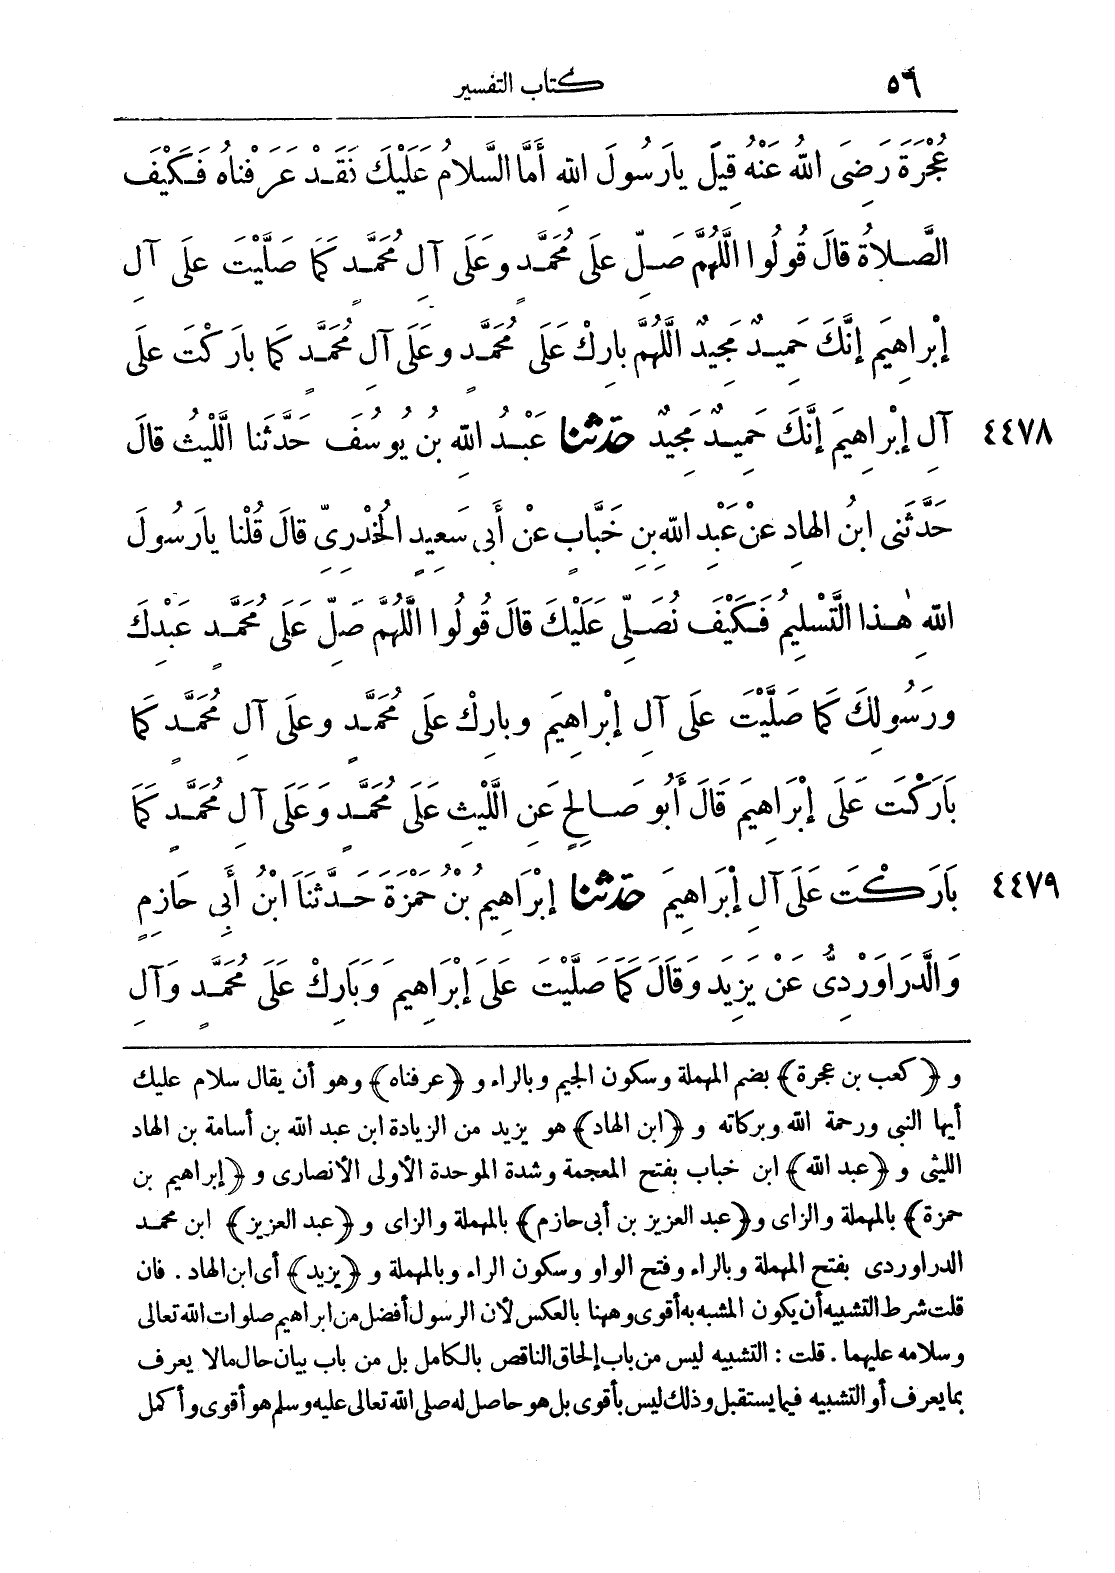 ٥٦
كتاب التفسير
عُجْرَةَ رَضِىَ اللهُ عَنْهُ قِيلَ يارَسُولَ اللهِ أَمَّا السَّلامُ عَلَيْكَ فَقَدْ عَرَفْناهُ فَكَيْفَ
الصَّلاةُ قالَ قُولُوا اللَّهُمَّ صَلِّ علَى مُحَمَّدٍ وعَلَى آلِ مُحَمَّدٍ كَما صَلَّيْتَ علَى آلِ
إبْراهِيمَ إنَّكَ حَمِيدٌ مَجِيدٌ اللَّهُمَّ بارِكْ عَلَى مُحَمَّدٍ وعَلَى آلِ مُحَمَّدٍ كَما بارَكْتَ علَى
آلِ إبْراهِيمَ إنَّكَ حَمِيدٌ مَجِيدٌ حدثنا عَبْدُ اللهِ بنُ يُوسُفَ حَدَّثَنا اللَّيْثُ قالَ
٤٤٧٨
حَدَّثَنى ابنُ الهادِ عنْ عَبْدِ اللهِ بنِ خَبَّابٍ عنْ أَبى سَعِيدٍ الخُدْرِىِّ قالَ قُلْنا يارَسُولَ
اللهِ هٰذا التَّسْلِيمُ فَكَيْفَ نُصَلِّى عَلَيْكَ قالَ قُولُوا اللَّهُمَّ صَلِّ عَلَى مُحَمَّدٍ عَبْدِكَ
ورَسُولِكَ كَما صَلَّيْتَ علَى آلِ إبْراهِيمَ وبارِكْ علَى مُحَمَّدٍ وعلَى آلِ مُحَمَّدٍ كَما
بَارَكْتَ علَى إبْرَاهِيمَ قَالَ أَبُو صَالِحٍ عَنِ اللَّيْثِ عَلَى مُحَمَّدٍ وَعَلَى آلِ مُحَمَّدٍ كَمَا
بَارَكْتَ عَلَى آلِ إبْرَاهِيمَ حدثنا إبْرَاهِيمُ بْنُ حَمْزَةَ حَدَّثَنَا ابْنُ أَبِى حَازِمٍ
٤٤٧٩
وَالدَّرَاوَرْدِىُّ عَنْ يَزِيدَ وَقَالَ كَمَا صَلَّيْتَ عَلَى إبْرَاهِيمَ وَبَارِكْ عَلَى مُحَمَّدٍ وَآلِ
و ﴿كعب بن عجرة﴾ بضم المهملة وسكون الجيم وبالراء و ﴿عرفناه﴾ وهو أن يقال سلام عليك
أيها النبى ورحمة الله وبركاته و ﴿ابن الهاد﴾ هو يزيد من الزيادة ابن عبد الله بن أسامة بن الهاد
الليثى و ﴿عبد الله﴾ ابن خباب بفتح المعجمة وشدة الموحدة الأولى الأنصارى و ﴿إبراهيم بن
حمزة﴾ بالمهملة والزاى و﴿عبد العزيز بن أبى حازم﴾ بالمهملة والزاى و ﴿عبد العزيز﴾ ابن محمد
الدراوردى بفتح المهملة وبالراء وفتح الواو وسكون الراء وبالمهملة و ﴿يزيد﴾ أى ابن الهاد . فان
قلت شرط التشبيه أن يكون المشبه به أقوى وههنا بالعكس لأن الرسول أفضل من ابراهيم صلوات الله تعالى
وسلامه عليهما . قلت : التشبيه ليس من باب إلحاق الناقص بالكامل بل من باب بيان حال مالا يعرف
بما يعرف أو التشبيه فيما يستقبل وذلك ليس بأقوى بل هو حاصل له صلى الله تعالى عليه وسلم هو أقوى وأكمل